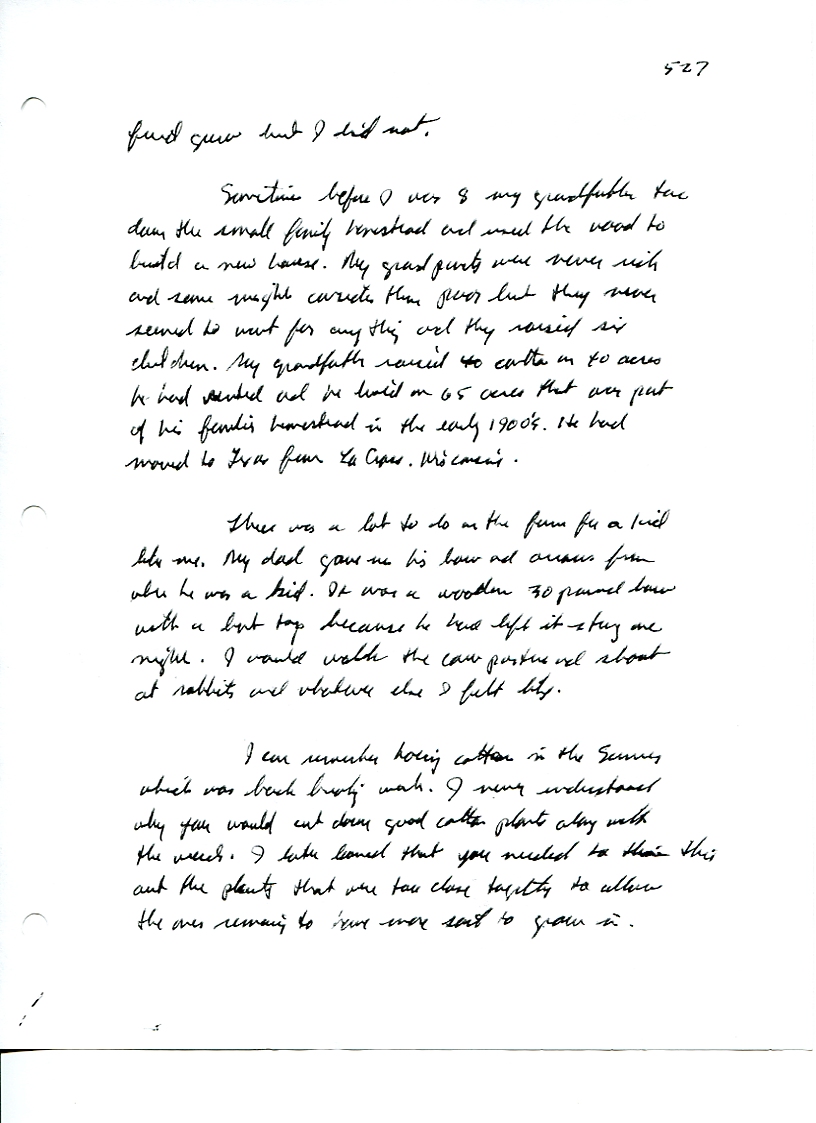 527
grew but I did not.
Sometime before I was 8 my grandfather tore
down the small family homestead and used the wood to
build a new house. My grandparents were never rich
and some might consider them poor but they never
seemed to want for anything and they raised six
children. My grandfather raised cotton on 40 acres
he had rented and he lived on 65 acres that was part
of his families homestead in the early 1900's. He had
moved to Texas from La Cross, Wisconsin.
There was a lot to do on the farm for a kid
like me. My dad gave me his bow and arrows from
when he was a kid. It was a wooden 30 pound bow
with a bent top because he had left it strung one
night. I would walk the cow pasture and shoot
at rabbits and whatever else I felt like.
I can remember hoeing cotton in the Summer
which was back breaking work. I never understood
why you would cut down good cotton plants along with
the weeds. I later learned that you needed to thin
out the plants that were too close together to allow
the ones remaining to have more soil to grow in.